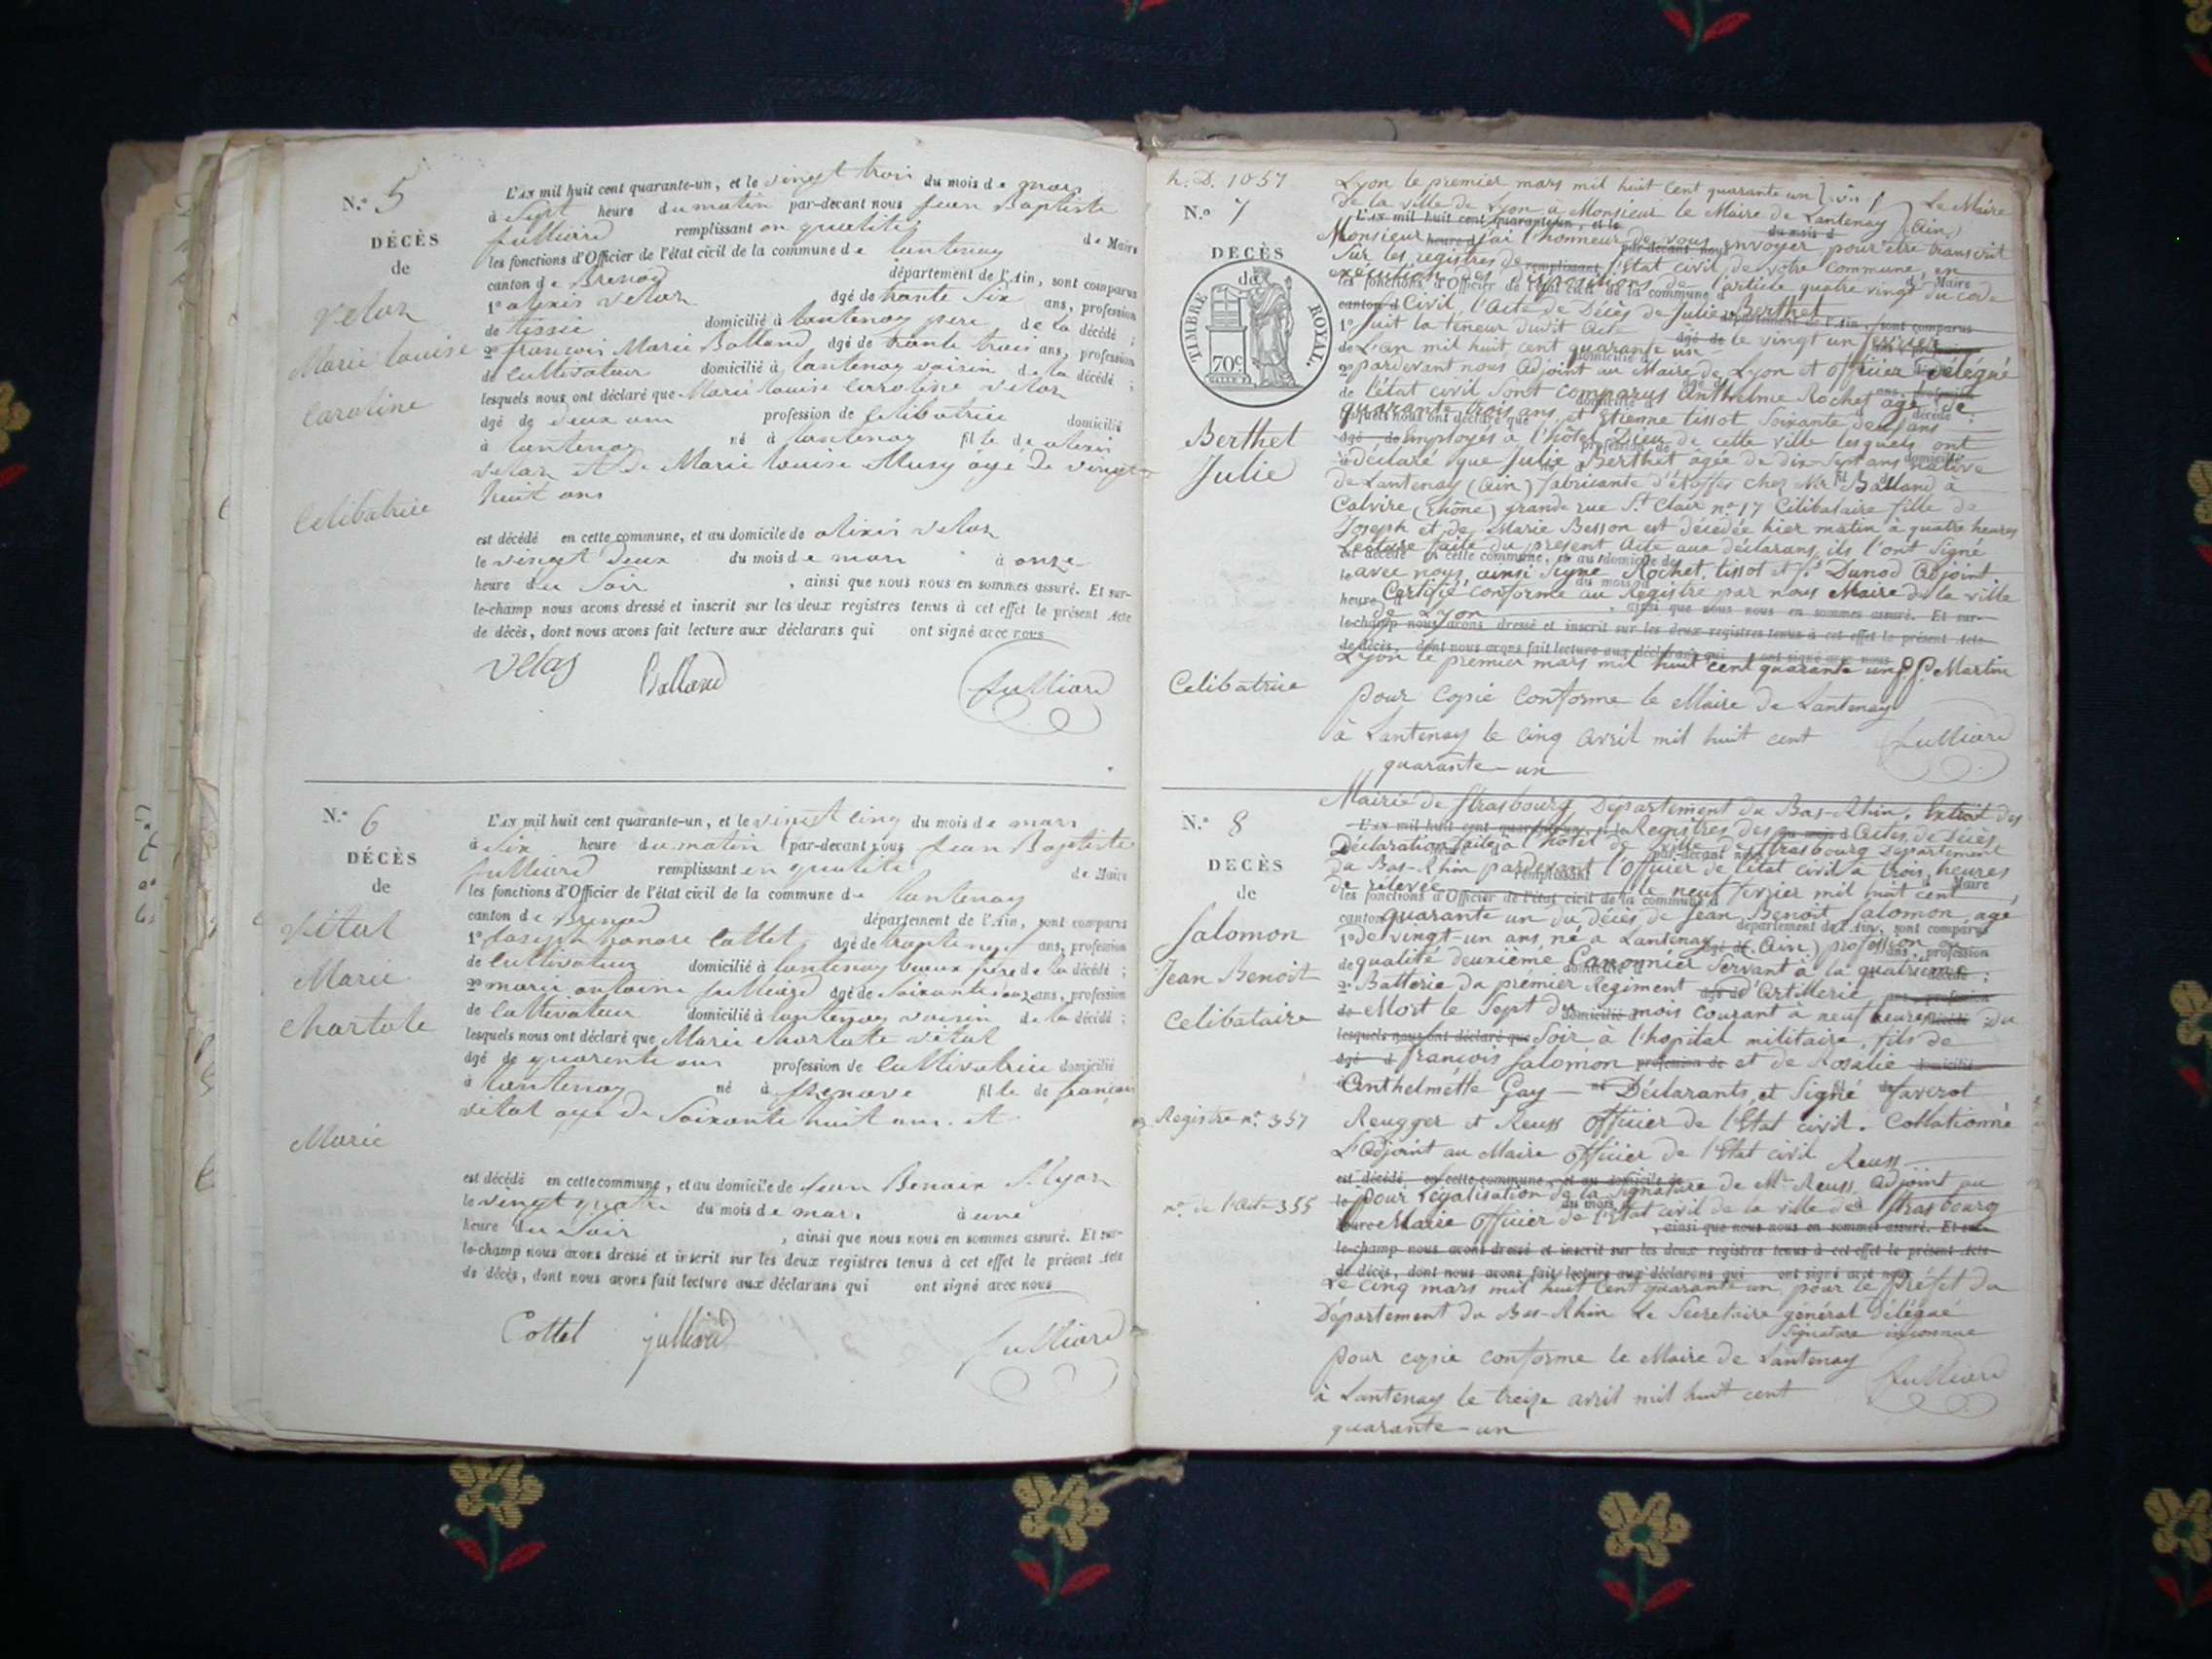 N.° 5
DÉCÈS
de
Velas
Marie Louise
Caroline
Celibatrice
L'AN mil huit cent quarante-un, et le vingt trois du mois de mars
à Sept heure du matin par-devant nous Jean Baptiste
Julliard remplissant en qualité de Maire
les fonctions d'Officier de l'état civil de la commune de Lantenay
canton de Brenod département de l'Ain, sont comparus
1° alexis Velas âgé de trante Six ans, profession
de tissie domicilié à Lantenay pere de la décédé ;
2° françois Marie Balland âgé de trante trois ans, profession
de Cultivateur domicilié à Lantenay voisin de la décédé ;
lesquels nous ont déclaré que Marie Louise Caroline Velas
âgé de deux ans profession de Celibatrice domicilié
à Lantenay né à Lantenay fille de alexis
Velas et de Marie Louise Musy âgé de vingt
huit ans
est décédé en cette commune, et au domicile de alexis Velas
le vingt deux du mois de mars à onze
heure du Soir , ainsi que nous nous en sommes assuré. Et sur-
le-champ nous avons dressé et inscrit sur les deux registres tenus à cet effet le présent Acte
de décès, dont nous avons fait lecture aux déclarans qui ont signé avec nous
Velas Balland Julliard
N.° 6
DÉCÈS
de
Vital
Marie
Charlote
Marie
L'AN mil huit cent quarante-un, et le vingt cinq du mois de mars
à Six heure du matin par-devant nous Jean Baptiste
Julliard remplissant en qualité de Maire
les fonctions d'Officier de l'état civil de la commune de Lantenay
canton de Brenod département de l'Ain, sont comparus
1° Joseph honoré Cottet âgé de trante neuf ans, profession
de Cultivateur domicilié à Lantenay beaux frère de la décédé ;
2° marie antoine Julliard âgé de Soixante onze ans, profession
de Cultivateur domicilié à Lantenay voisin de la décédé ;
lesquels nous ont déclaré que Marie Charlotte Vital
âgé de quarente ans profession de Cultivatrice domicilié
à Lantenay né à fille de françois
Vital âgé de Soixante huit ans et
est décédé en cette commune, et au domicile de Jean Benoix
le vingt quatre du mois de mars à une
heure du Soir , ainsi que nous nous en sommes assuré. Et sur-
le-champ nous avons dressé et inscrit sur les deux registres tenus à cet effet le présent Acte
de décès, dont nous avons fait lecture aux déclarans qui ont signé avec nous
Cottet Julliard Julliard
h. D. 1057
N.° 7
DÉCÈS
de
TIMBRE ROYAL
70c
Berthet
Julie
Celibatrice
Lyon le premier mars mil huit cent quarante un Le Maire
de la ville de Lyon a Monsieur le Maire de Lantenay (Ain)
Monsieur j'ai l'honneur de vous envoyer pour être transcrit
Sur les registres de l'Etat civil de votre commune, en
exécution des dispositions de l'article quatre vingt du code
Civil, l'Acte de Décès de Julie Berthet
Suit la teneur dudit Acte
L'an mil huit cent quarante un le vingt un fevrier
pardevant nous Adjoint au Maire de Lyon et officier délégué
de l'état civil Sont comparus Anthelme Rochet agé de
quarante trois ans, et Etienne tissot Soixante deux ans
Employés à l'hôtel Dieu de cette ville lesquels ont
déclaré que Julie Berthet âgée de dix-Sept ans native
de Lantenay (Ain) fabricante d'étoffes chez Mr Balland à
Calvire (Rhône) grande rue St Clair n° 17 Célibataire fille de
Joseph et de Marie Besson est décédée hier matin à quatre heures
Lecture faite du présent Acte aux déclarans, ils l'ont Signé
avec nous, ainsi Signé Rochet, tissot et Dunod Adjoint
Certifié conforme au Registre par nous Maire de la ville
de Lyon
Lyon le premier mars mil huit cent quarante un Martin
pour copie conforme le Maire de Lantenay
à Lantenay le cinq avril mil huit cent
quarante-un Julliard
N.° 8
DÉCÈS
de
Salomon
Jean Benoit
Celibataire
Registre n° 357
n° de l'Acte 355
Mairie de Strasbourg Departement du Bas-Rhin. Extrait des
Registres des Actes de Décès
Déclaration faite à l'hôtel de ville de Strasbourg Departement
du Bas-Rhin pardevant l'Officier de l'état civil à trois heures
de relevée le neuf fevrier mil huit cent
quarante un du décès de Jean Benoit Salomon, agé
de vingt-un ans, né a Lantenay (Ain) profession ou
qualité deuxième Canonnier Servant à la quatrieme
Batterie du premier Regiment d'Artillerie
Mort le Sept du mois courant à neuf heures du
Soir à l'hopital militaire, fils de
françois Salomon et de Rosalie
Anthelmette Gay — Déclarants, et Signé Taverot
Reugger et Reuss officier de l'Etat civil. Collationné
L'Adjoint au Maire officier de l'Etat civil Reuss
pour Légalisation de la Signature de Mr Reuss Adjoint au
Maire officier de l'Etat civil de la ville de Strasbourg
Le cinq mars mil huit cent quarante un, pour le Préfet du
Département du Bas-Rhin Le Secretaire général Délégué
Signature inconnue
pour copie conforme le Maire de Lantenay
à Lantenay le treize avril mil huit cent Julliard
quarante-un